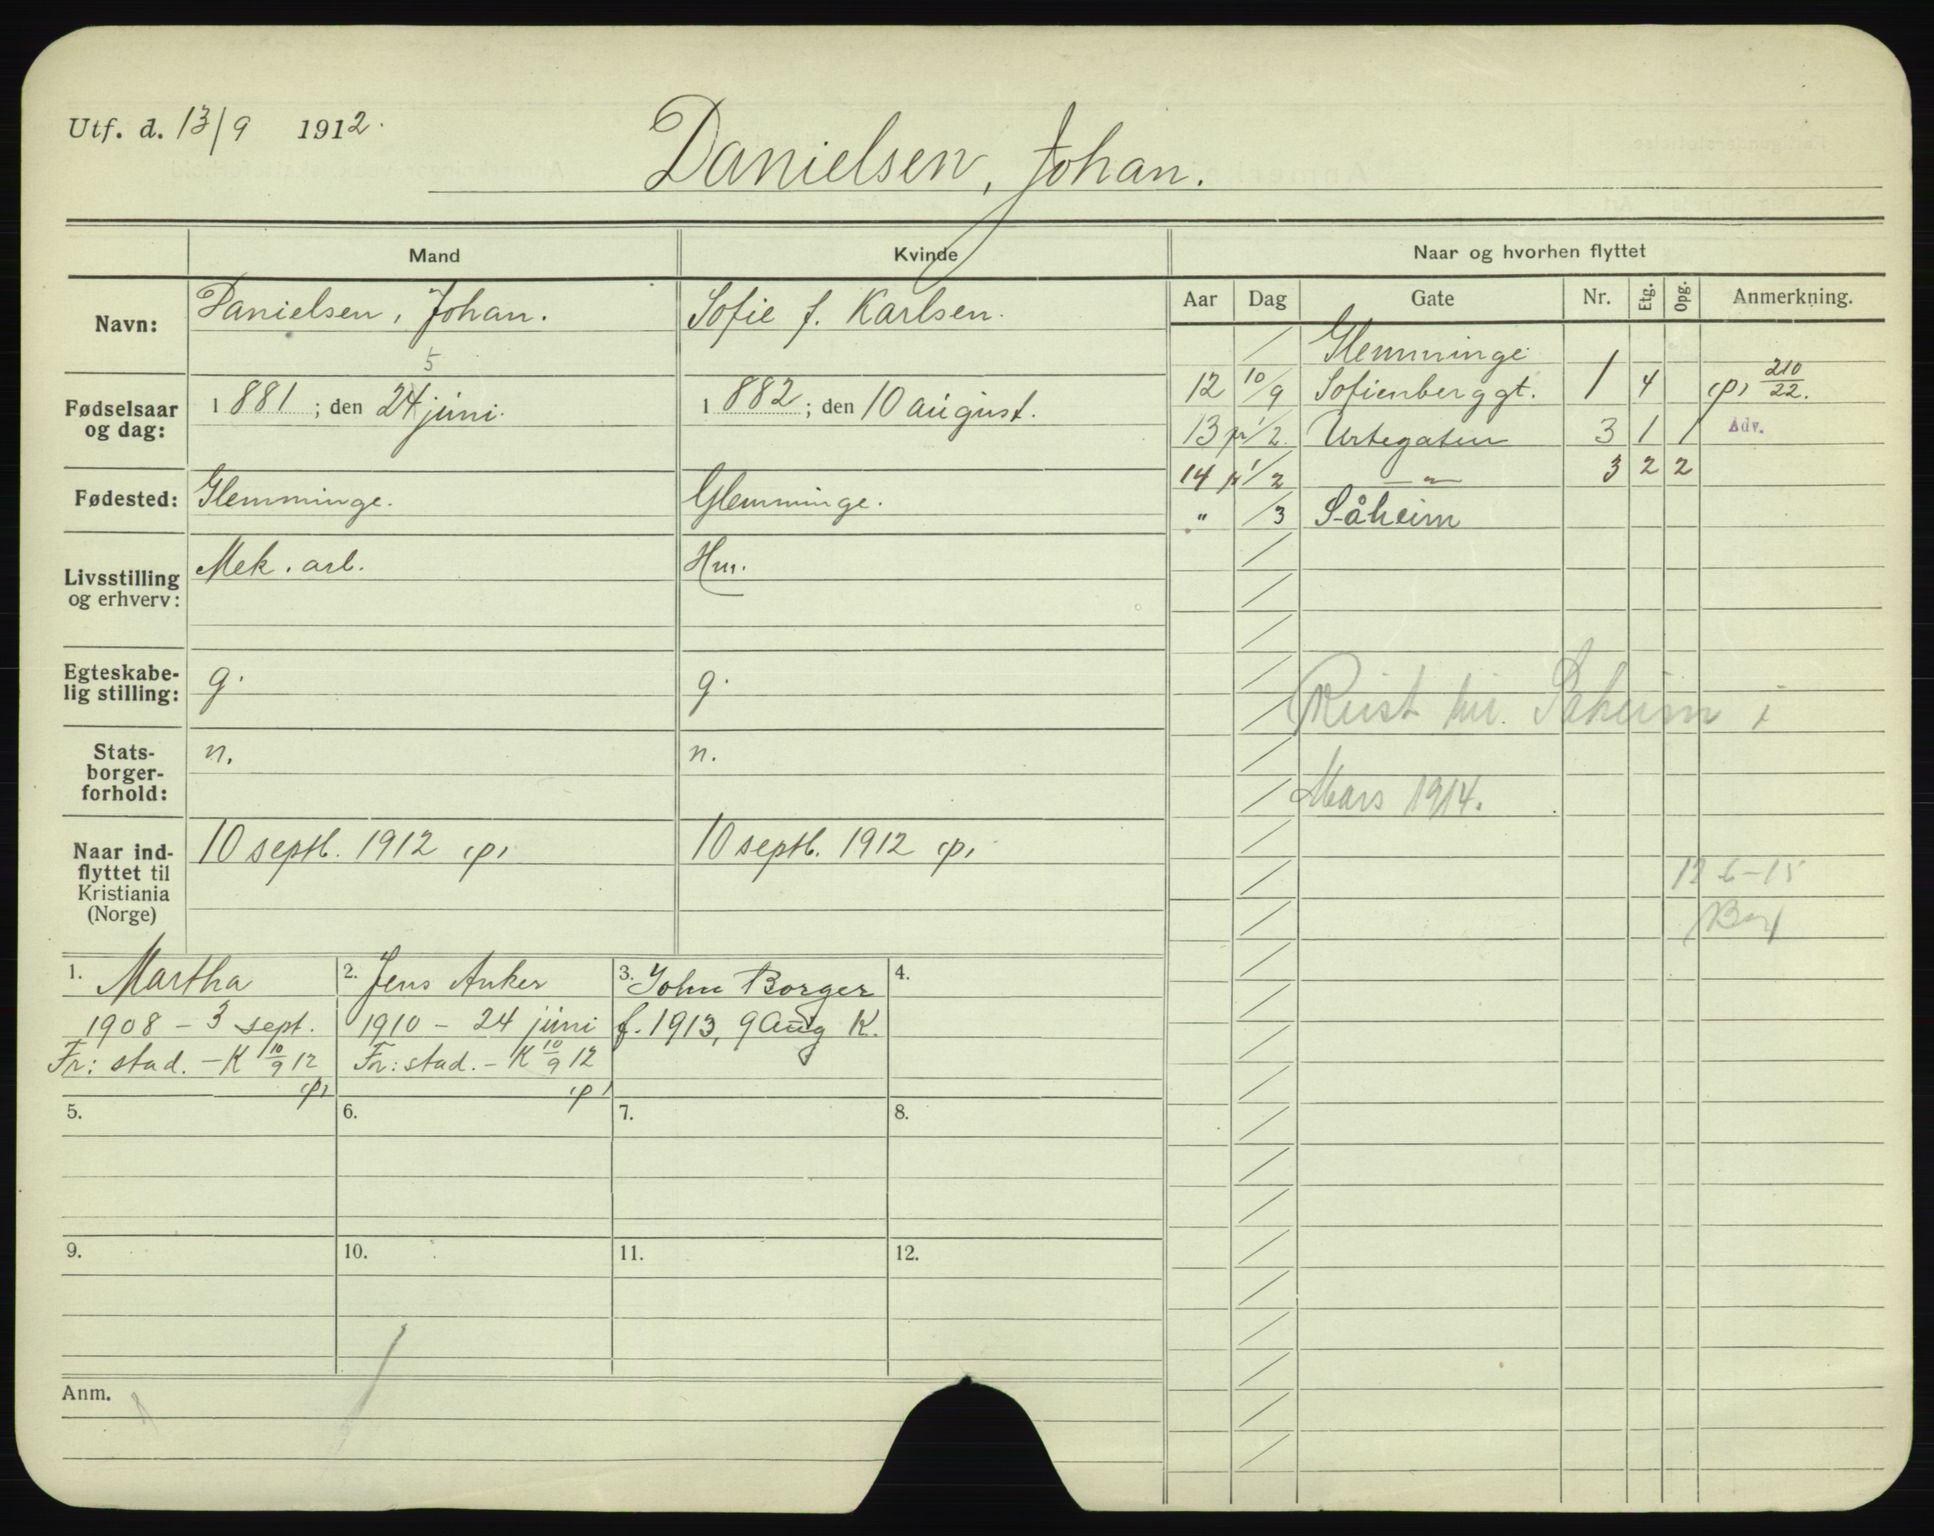 Utf. d. 13/9 1912.
Danielsen, Johan.
Mand Kvinde Naar og hvorhen flyttet
Navn: Danielsen, Johan. Sofie f. Karlsen.
Fødselsaar og dag: 1881; den 24 juni. 1882; den 10 august.
5
Fødested: Glemminge. Glemminge.
Livsstilling og erhverv: Mek. arb. Hm.
Egteskabe-
lig stilling: g. g.
Stats-
borger-
forhold: n. n.
Naar ind-
flyttet til
Kristiania
(Norge)
10 septb. 1912 (p) 10 septb. 1912 (p)
1. Martha
1908 – 3 sept.
Fr: stad. – K 10/9 12
(p)
2. Jens Anker
1910 – 24 juni
Fr: stad. – K 10/9 12
(p)
3. John Borger
f. 1913, 9 Aug K.
4.
5. 6. 7. 8.
9. 10. 11. 12.
Anm.
Aar Dag Gate Nr. Etg. Opg. Anmerkning.
/ Glemminge
12 10/9 Sofienberggt. 1 4 (p) 210/22.
13 pr 1/2 Urtegaten 3 1 1 Adv.
14 pr 1/2 — " — 3 2 2
" /3 Såheim
Reist til Saheim i
Mars 1914.
6-15